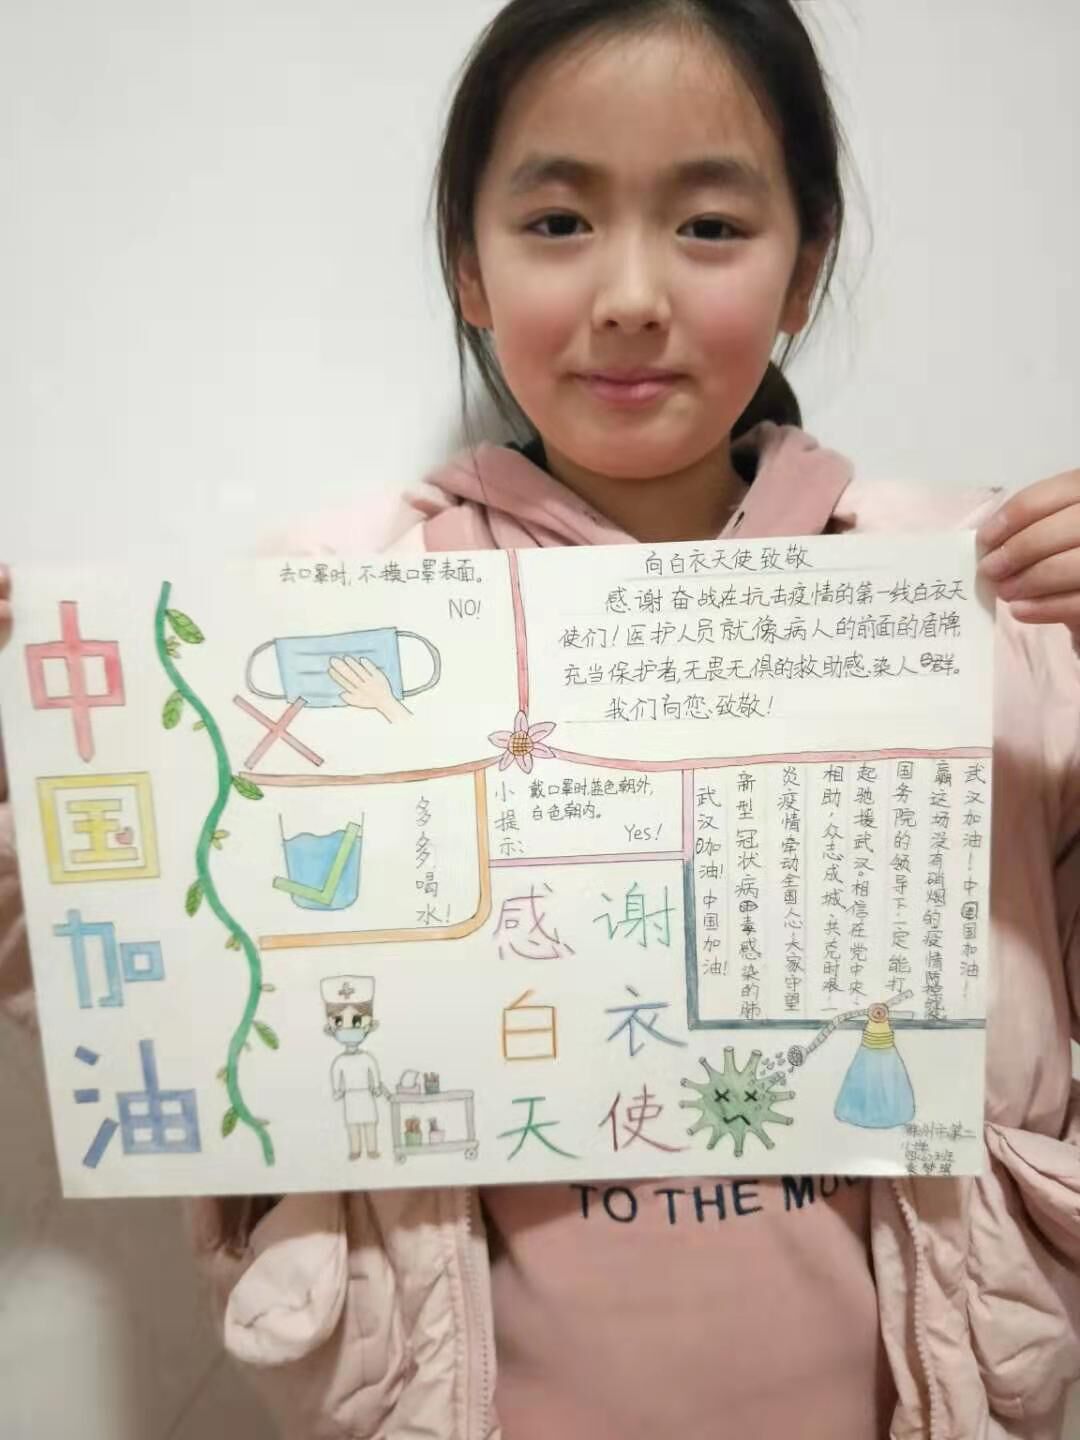 中国加油
去口罩时,不摸口罩表面。
NO!
多多喝水!
向白衣天使致敬
感谢奋战在抗击疫情的第一线白衣天
使们!医护人员就像病人的前面的盾牌,
充当保护者,无畏无惧的救助感染人群。
我们向您致敬!
小提示:
戴口罩时,蓝色朝外,
白色朝内。
Yes!
武汉加油!中国加油!
新型冠状病毒感染的肺
炎疫情牵动全国人心,大家守望
相助,众志成城,共克时艰,一
起驰援武汉。相信在党中央、
国务院的领导下,一定能打
赢这场没有硝烟的疫情防控
武汉加油!中国国加油!
感谢
白衣
天使
州市第二
小学
TO THE